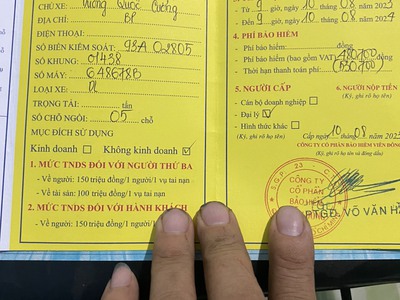 CHỦ XE: Vương Quốc Cường
ĐỊA CHỈ: BP
ĐIỆN THOẠI:
SỐ BIỂN KIỂM SOÁT: 93A 02805
SỐ KHUNG: 01438
SỐ MÁY: 648678B
LOẠI XE: DL
TRỌNG TẢI: tấn
SỐ CHỖ NGỒI: 05 chỗ
MỤC ĐÍCH SỬ DỤNG
Kinh doanh Không kinh doanh
1. MỨC TNDS ĐỐI VỚI NGƯỜI THỨ BA
- Về người: 150 triệu đồng/1 người/1 vụ tai nạn
- Về tài sản: 100 triệu đồng/1 vụ tai nạn
2. MỨC TNDS ĐỐI VỚI HÀNH KHÁCH
- Về người: 150 triệu đồng/1 người/1 vụ
Từ 9 giờ, ngày 10 / 08
Đến 9 giờ, ngày 10 / 08
4. PHÍ BẢO HIỂM
Phí bảo hiểm: đồng
Phí bảo hiểm (bao gồm VAT)
Thời hạn thanh toán phí: (530.700)
5. NGƯỜI CẤP 6. NGƯỜI NỘP TIỀN
Cán bộ doanh nghiệp (Ký, ghi rõ họ tên)
Đại lý
Hình thức khác
(Ký, ghi rõ họ tên) Cấp ngày 10 / 08
CÔNG TY CỔ PHẦN BẢO HIỂM VIỄN ĐÔNG
(Ký, ghi rõ họ tên và đóng dấu)
CÔNG TY
CỔ PHẦN
BẢO HIỂM
P.TGĐ. VÕ VĂN